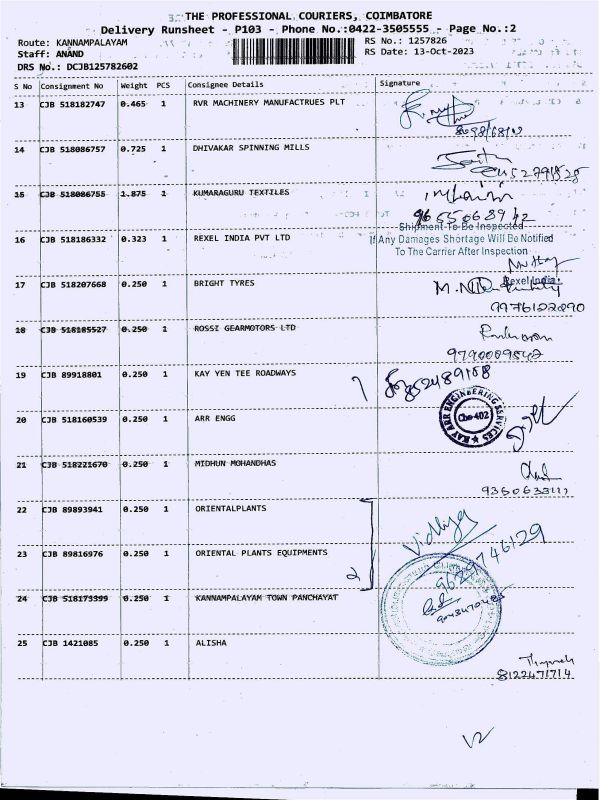 THE PROFESSIONAL COURIERS, COIMBATORE
Delivery Runsheet - P103 - Phone No.:0422-3505555 - Page No.:2
Route: KANNAMPALAYAM RS No.: 1257826
Staff: ANAND RS Date: 13-Oct-2023
DRS No.: DCJB125782602
S No Consignment No Weight PCS Consignee Details Signature
13 CJB 518182747 0.465 1 RVR MACHINERY MANUFACTRUES PLT
14 CJB 518086757 0.725 1 DHIVAKAR SPINNING MILLS
15 CJB 518086755 1.875 1 KUMARAGURU TEXTILES
Shipment To Be Inspected
16 CJB 518186332 0.323 1 REXEL INDIA PVT LTD If Any Damages Shortage Will Be Notified
To The Carrier After Inspection
Rexel India
17 CJB 518207668 0.250 1 BRIGHT TYRES
9976122090
18 CJB 518185527 0.250 1 ROSSI GEARMOTORS LTD
9790009542
19 CJB 89918801 0.250 1 KAY YEN TEE ROADWAYS
20 CJB 518160539 0.250 1 ARR ENGG
KAY ARR ENGINEERING SERVICES
Cbe-402
21 CJB 518221670 0.250 1 MIDHUN MOHANDHAS
22 CJB 89893941 0.250 1 ORIENTALPLANTS
Vidhya
9629746129
23 CJB 89816976 0.250 1 ORIENTAL PLANTS EQUIPMENTS
2
24 CJB 518173399 0.250 1 KANNAMPALAYAM TOWN PANCHAYAT
25 CJB 1421085 0.250 1 ALISHA
8122471714
12